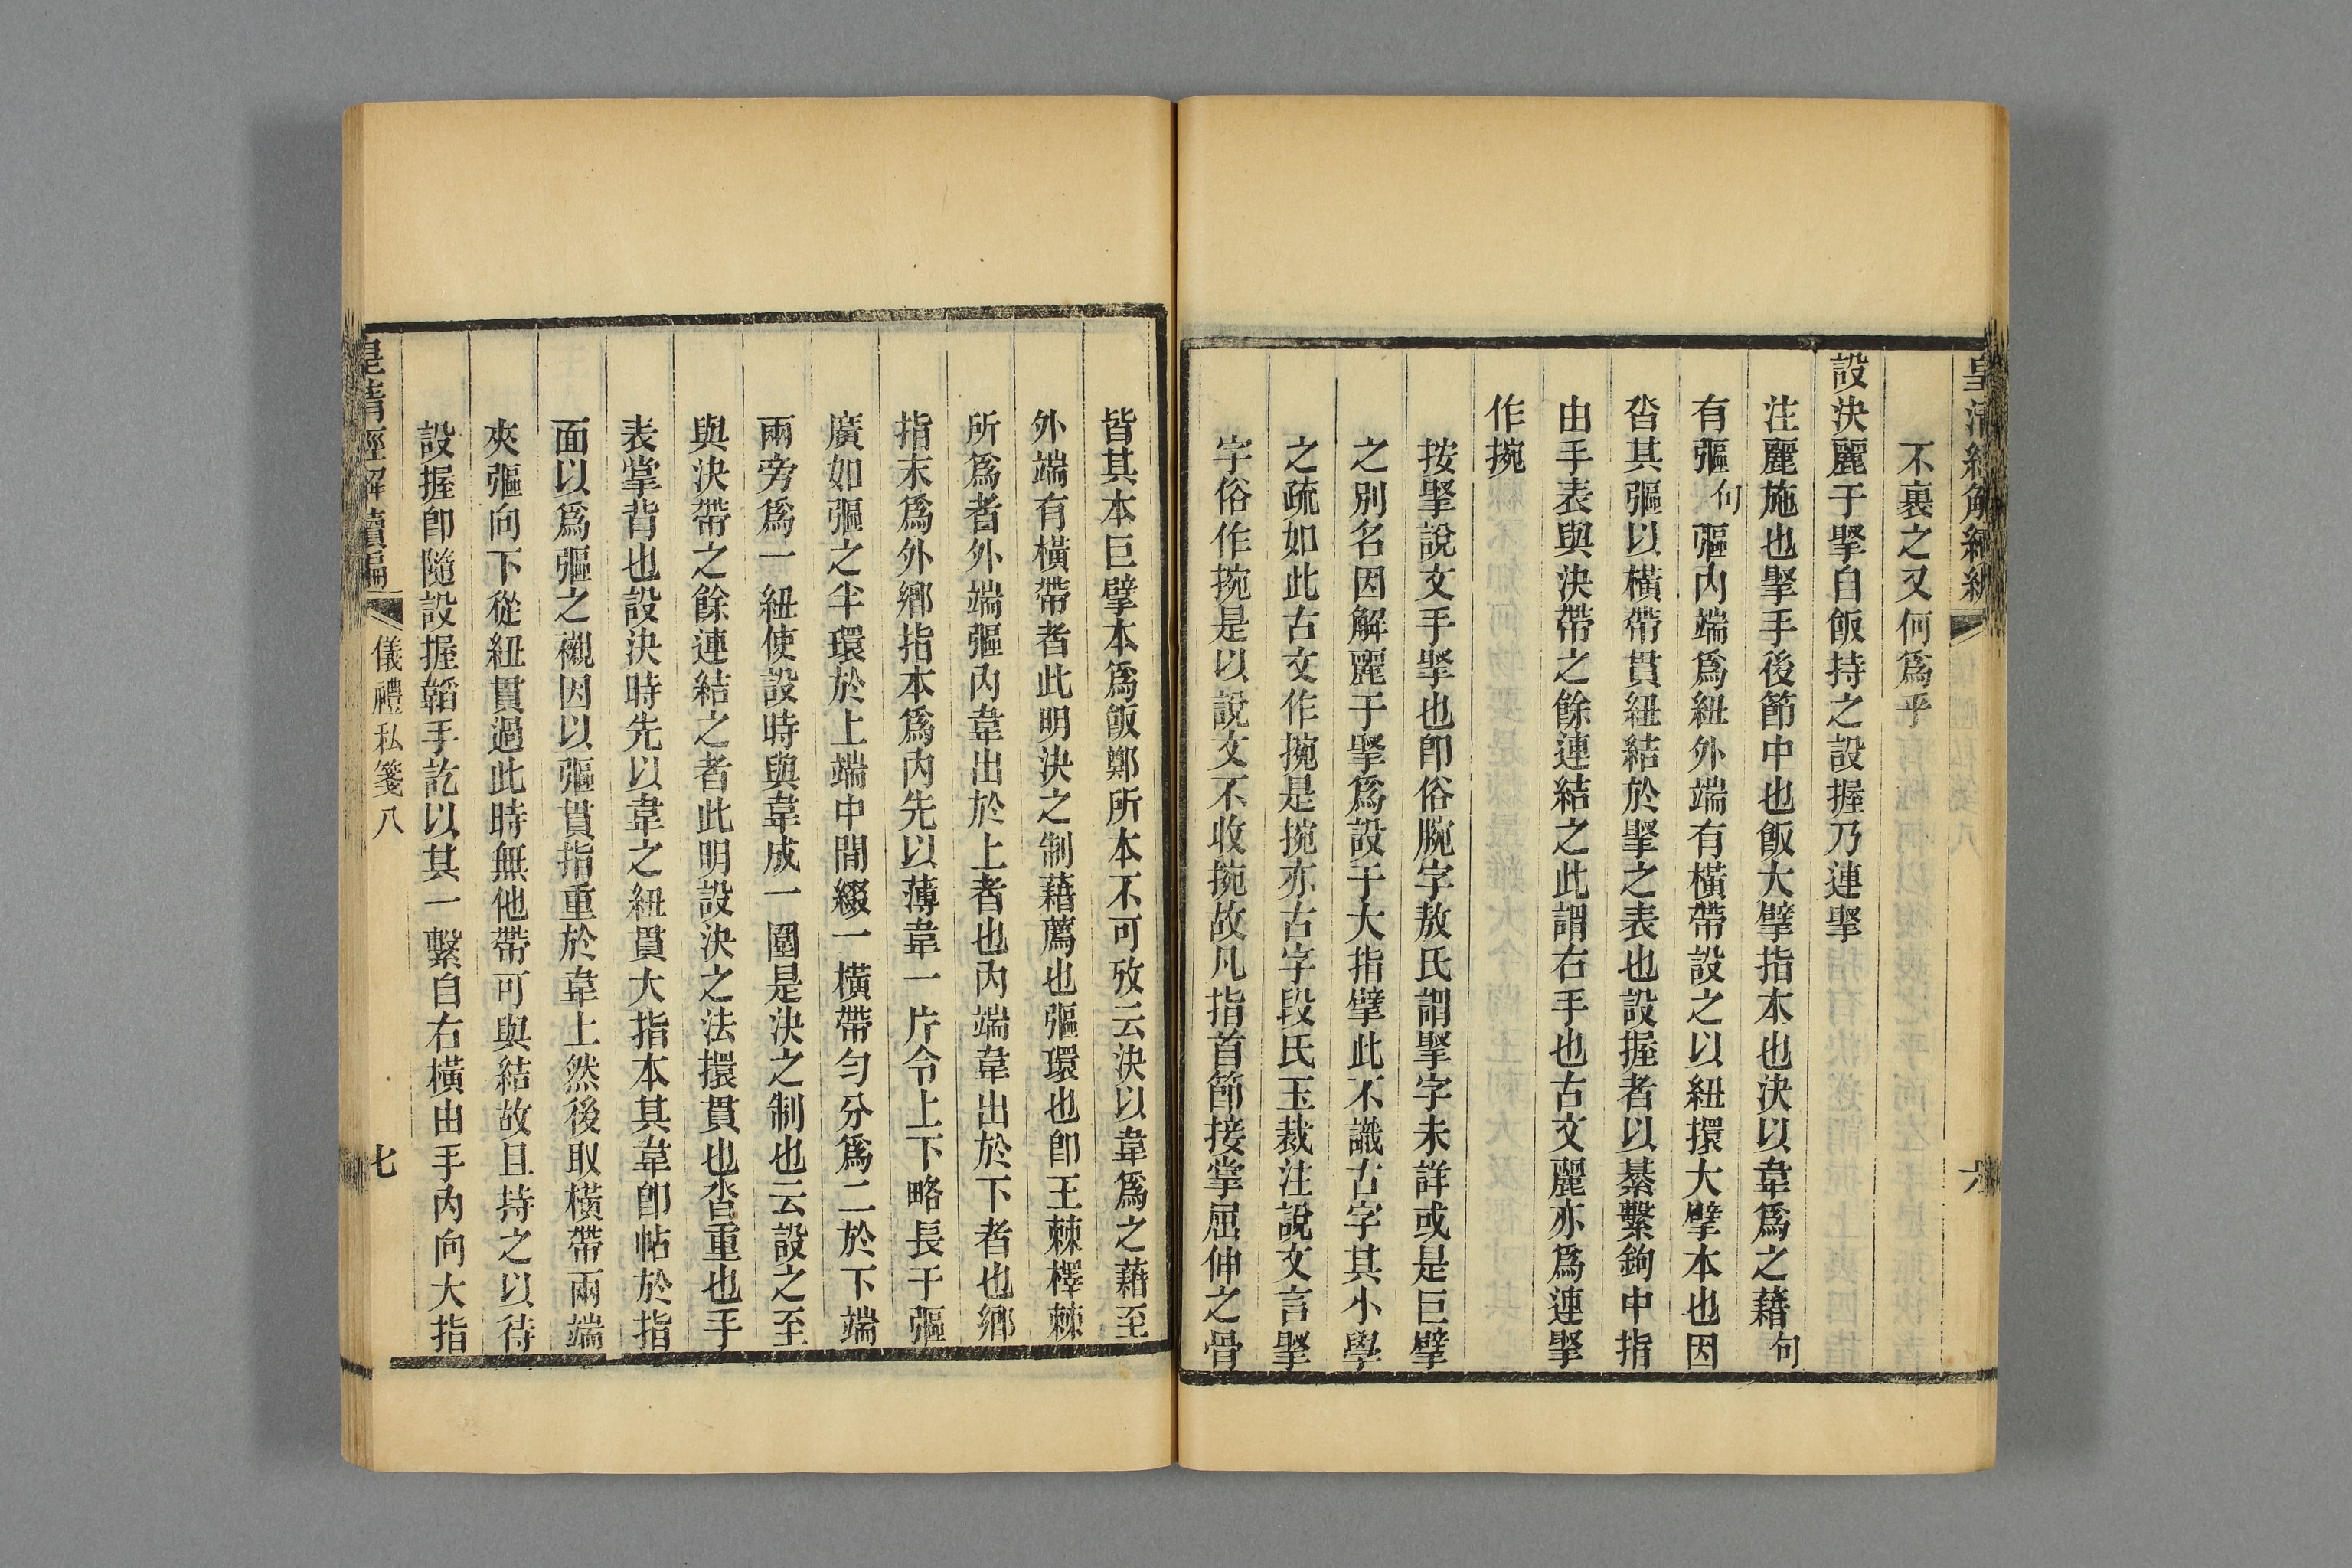 不裹之又何爲乎
設決麗于掔自飯持之設握乃連掔
注麗施也掔手後節中也飯大擘指本也決以韋爲之藉句
有彄句彄內端爲紐外端有橫帶設之以紐擐大擘本也因
沓其彄以橫帶貫紐結於掔之表也設握者以綦繫鉤中指
由手表與決帶之餘連結之此謂右手也古文麗亦爲連掔
作捥
按掔說文手掔也卽俗腕字敖氏謂掔字未詳或是巨擘
之別名因解麗于掔爲設于大指擘此不識古字其小學
之疏如此古文作捥是捥亦古字段氏玉裁注說文言掔
字俗作捥是以說文不收捥故凡指首節接掌屈伸之骨
皆其本巨擘本爲飯鄭所本不可攷云決以韋爲之藉至
外端有橫帶者此明決之制藉薦也彄環也卽王棘檡棘
所爲者外端彄內韋出於上者也內端韋出於下者也鄉
指末爲外鄉指本爲內先以薄韋一片令上下略長于彄
廣如彄之半環於上端中間綴一橫帶勻分爲二於下端
兩旁爲一紐使設時與韋成一圍是決之制也云設之至
與決帶之餘連結之者此明設決之法擐貫也沓重也手
表掌背也設決時先以韋之紐貫大指本其韋卽帖於指
面以爲彄之襯因以彄貫指重於韋上然後取橫帶兩端
夾彄向下從紐貫過此時無他帶可與結故且持之以待
設握卽隨設握韜手訖以其一繫自右橫由手內向大指
皇清經解續編
儀禮私箋八
七